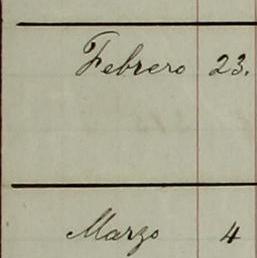 Febrero 23.
Marzo 4